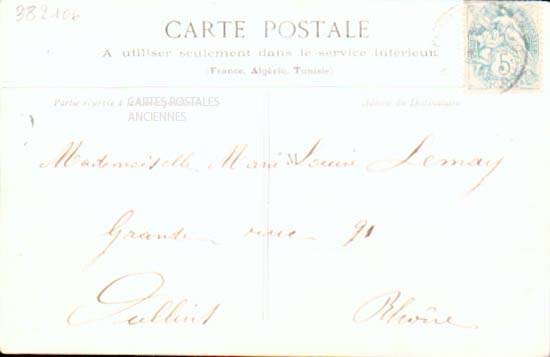 382106
CARTE POSTALE
A utiliser seulement dans le service intérieur
(France, Algérie, Tunisie)
5
Partie réservée à la
CARTES POSTALES
ANCIENNES
Adresse du Destinataire
Mademoiselle Marie Louise Lemay
Grande rue 91
Oullins Rhône